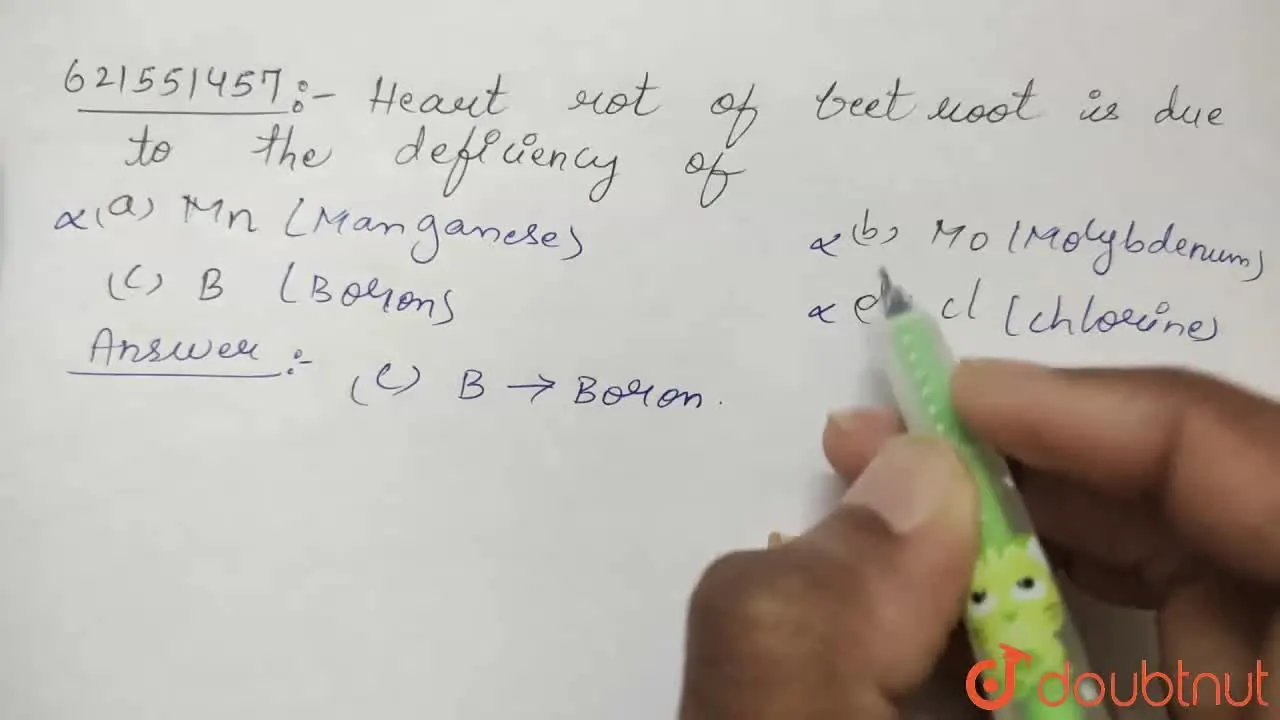 621551457:- Heart rot of beet root is due
to the deficiency of
(a) Mn (Manganese)
(b) Mo (Molybdenum)
(c) B (Boron)
Cl (chlorine)
Answer:- (c) B → Boron.
doubtnut